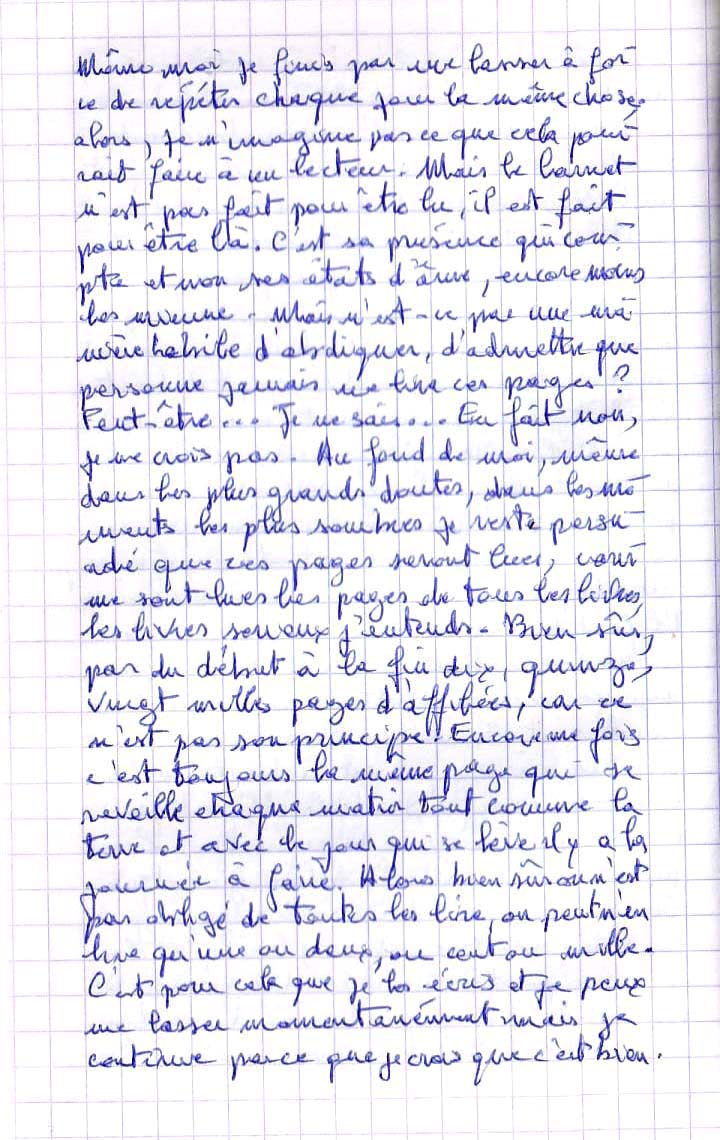 Même moi je finis par me lasser à for-
ce de répéter chaque jour la même chose,
alors, je n'imagine pas ce que cela pour-
rait faire à un lecteur. Mais le carnet
n'est pas fait pour être lu, il est fait
pour être là. C'est sa présence qui com-
pte et non ses états d'âme, encore moins
les miens. Mais n'est-ce pas une ma-
nière habile d'abdiquer, d'admettre que
personne jamais ne lira ces pages ?
Peut-être... Je ne sais... En fait non,
je ne crois pas. Au fond de moi, même
dans les plus grands doutes, dans les mo-
ments les plus sombres je reste persu-
adé que ces pages seront lues, com-
me sont lues les pages de tous les livres,
les livres sérieux j'entends. Bien sûr,
pas du début à la fin dix, quinze,
vingt milles pages d'affilées, car ce
n'est pas son principe. Encore une fois
c'est toujours la même page qui se
réveille chaque matin tout comme la
terre et avec le jour qui se lève il y a la
journée à faire. Alors bien sûr on n'est
pas obligé de toutes les lire, on peut n'en
lire qu'une ou deux, ou cent ou mille.
C'est pour cela que je les écris et je peux
me lasser momentanément mais je
continue parce que je crois que c'est bien.